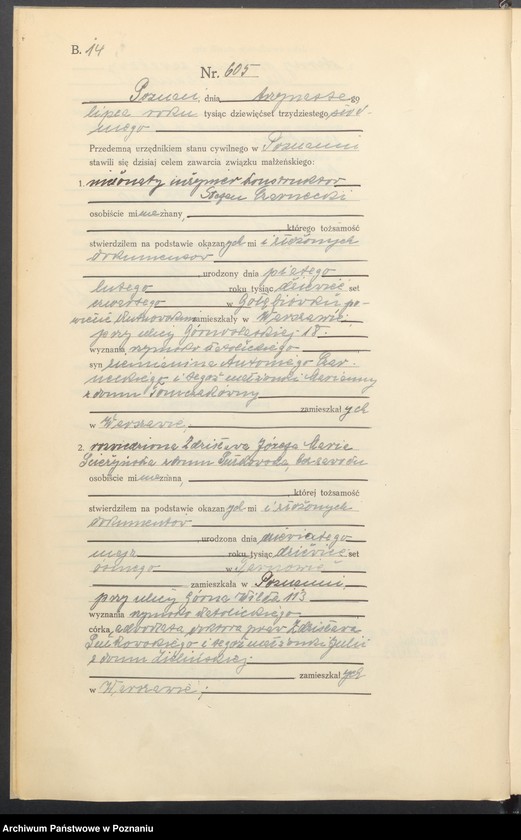 B. 14
Nr. 605
Poznań, dnia trzynastego
lipca roku tysiąc dziewięćset trzydziestego siód-
mego
Przedemną urzędnikiem stanu cywilnego w Poznaniu
stawili się dzisiaj celem zawarcia związku małżeńskiego:
1. nieżonaty inżynier konstruktor
Czarnecki
osobiście mi nieznany,
którego tożsamość
stwierdziłem na podstawie okazanych mi i złożonych
dokumentów
, urodzony dnia piątego
lutego roku tysiąc dziewięćset
czwartego w po-
wiecie zamieszkały w Warszawie
przy ulicy 18.
wyznania rzymsko katolickiego
syn Antoniego Czar-
neckiego i tegoż małżonki Marianny
z domu
zamieszkałych
w Warszawie,
2. rozwiedziona Zdzisława Józefa Maria
z domu
osobiście mi nieznana,
, której tożsamość
stwierdziłem na podstawie okazanych mi i złożonych
dokumentów
, urodzona dnia dziewiątego
maja roku tysiąc dziewięćset
ósmego w
zamieszkała w Poznaniu,
przy ulicy Górna Wilda 113
wyznania rzymsko katolickiego
córka adwokata, doktora praw Zdzisława
i tegoż małżonki Julii
z domu
zamieszkałych
w Warszawie;
Archiwum Państwowe w Poznaniu